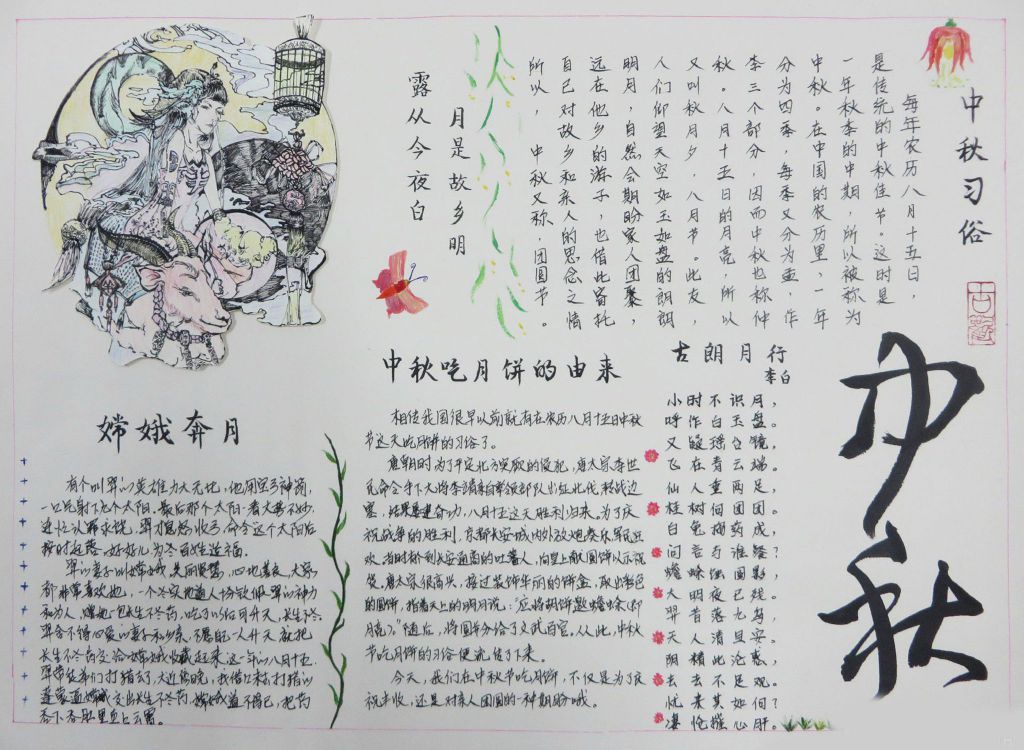 中秋习俗
每年农历八月十五日,
是传统的中秋佳节。这时是
一年秋季的中期,所以被称为
中秋。在中国的农历里,一年
分为四季,每季又分为孟,作
李三个部分,因而中秋也称仲
秋。八月十五日的月亮,所以
又叫秋月夕,八月节。此友,
人们仰望天空如玉如盘的朗朗
明月,自然会期盼家人团聚,
远在他乡的游子,也借此寄托
自己对故乡和亲人的思念之情
所以,中秋又称,团圆节。
月是故乡明
露从今夜白
中秋
古朗月行
李白
小时不识月,
呼作白玉盘。
又疑瑶台镜,
飞在青云端。
仙人垂两足,
桂树何团团。
白兔捣药成,
问言与谁餐?
蟾蜍蚀圆影,
大明夜已残。
羿昔落九乌,
天人清且安。
阴精此沦惑,
去去不足观。
忧来其如何?
凄怆摧心肝。
中秋吃月饼的由来
相传我国很早以前就有在农历八月十五日中秋
节这天吃月饼的习俗了。
唐朝时为了平定北方突厥的侵犯,唐太宗李世
民命令手下大将李靖亲自率领部队出征北伐,转战边
塞,结果屡建奇功,八月十五这天胜利归来。为了庆
祝战争的胜利,京都长安城内外放炮奏乐,军民狂
欢。当时称到长安通商的吐蕃人,向皇上献圆饼以示祝
贺。唐太宗很高兴,接过装饰华丽的饼盒,取出彩色
的圆饼,指着天上的明月说:"应将胡饼邀蟾蜍(即
月亮)。"随后,将圆饼分给了文武百官。从此,中秋
节吃月饼的习俗便流传了下来。
今天,我们在中秋节吃月饼,不仅是为了庆
祝丰收,还是对亲人团圆的一种期盼哦。
嫦娥奔月
有个叫羿的英雄力大无比,他用宝弓神箭,
一口气射下九个太阳。最后那个太阳一看大事不妙,
连忙认罪求饶,羿才息怒收弓,命令这个太阳后
按时起落,好好儿为老百姓造福。
羿的妻子叫嫦娥,美丽贤慧,心地善良,大家
都非常喜欢她,一个
和为人,赠她一包长生不老药,吃了以后可升天,长生不老。
羿舍不得心爱的妻子和乡亲,不愿自己一人升天,就把
长生不老药交给嫦娥收藏起来。这一年的八月十五,
羿带徒弟们打猎去了,天近傍晚,
逢蒙逼嫦娥交出长生不老药,嫦娥迫不得已,把药
吞下